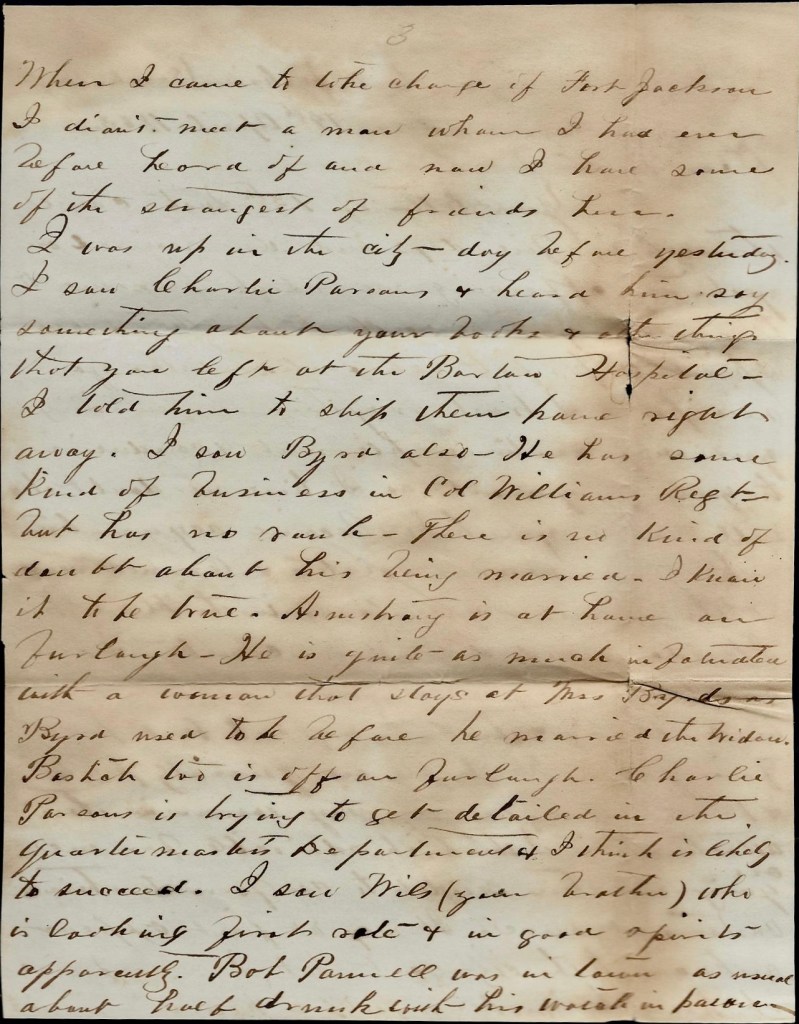 3
When I came to take charge of Fort Jackson
I didn't meet a man whom I had ever
before heard of and now I have some
of the strongest of friends here.
I was up in the city - day before yesterday.
I saw Charlie Parsons & heard him say
something about your books & other things
that you left at the Bartow Hospital -
I told him to ship them home right
away. I saw Byrd also - He has some
kind of business in Col Williams Regt -
but has no rank - There is no kind of
doubt about his being married - I know
it to be true. Armstrong is at home on
Furlough - He is quite as much infatuated
with a woman that stays at Mrs Byrds as
Byrd used to be before he married the widow.
too is off on Furlough. Charlie
Parsons is trying to get detailed in the
Quartermasters Department & I think is likely
to succeed. I saw Wils (your brother) who
is looking first rate & in good spirits
apparently. Bob Pannell was in town as usual
about half drunk with his watch in